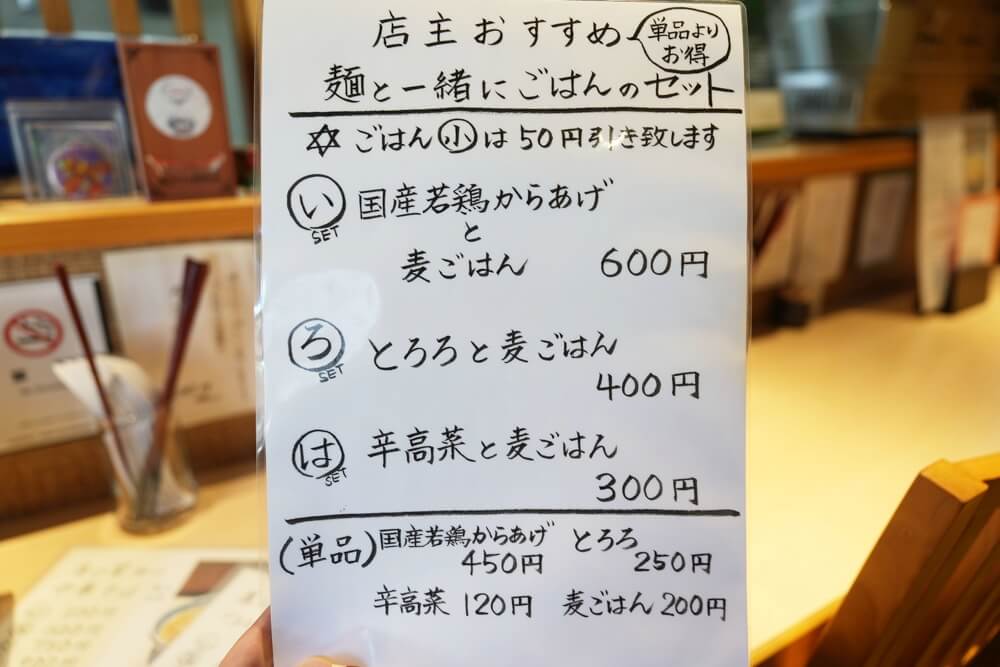 店主おすすめ
単品より
お得
麺と一緒にごはんのセット
✡ごはん小は50円引き致します
い 国産若鶏からあげ
SET
と
麦ごはん 600円
ろ とろろと麦ごはん
SET
400円
は 辛高菜と麦ごはん
SET
300円
(単品) 国産若鶏からあげ とろろ
450円 250円
辛高菜 120円 麦ごはん 200円